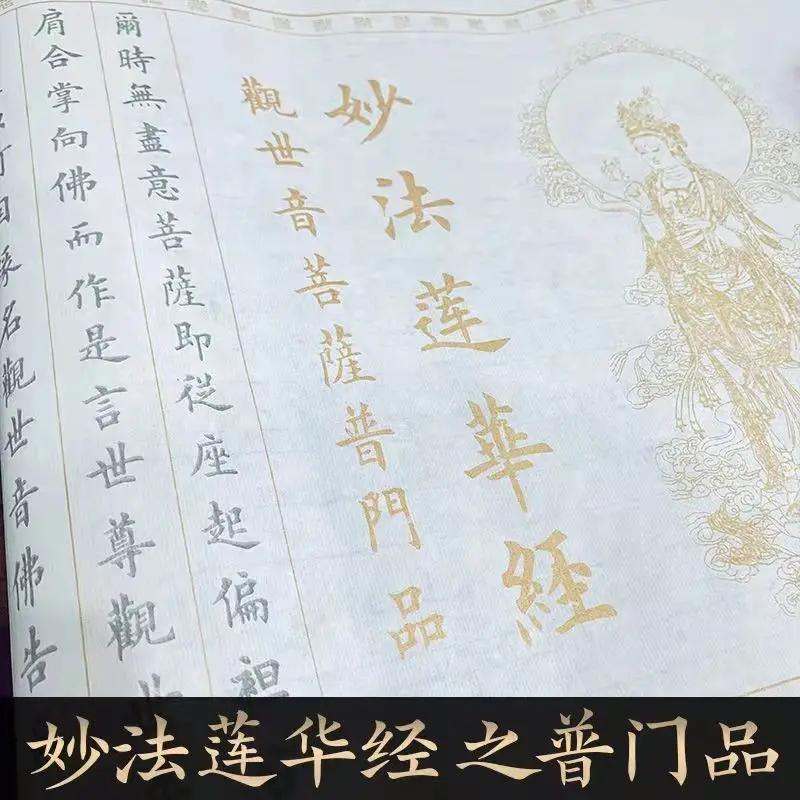 妙法莲華經
觀世音菩薩普門品
爾時無盡意菩薩即從座起偏袒
肩合掌向佛而作是言世尊觀世
名觀世音佛告
妙法莲华经之普门品